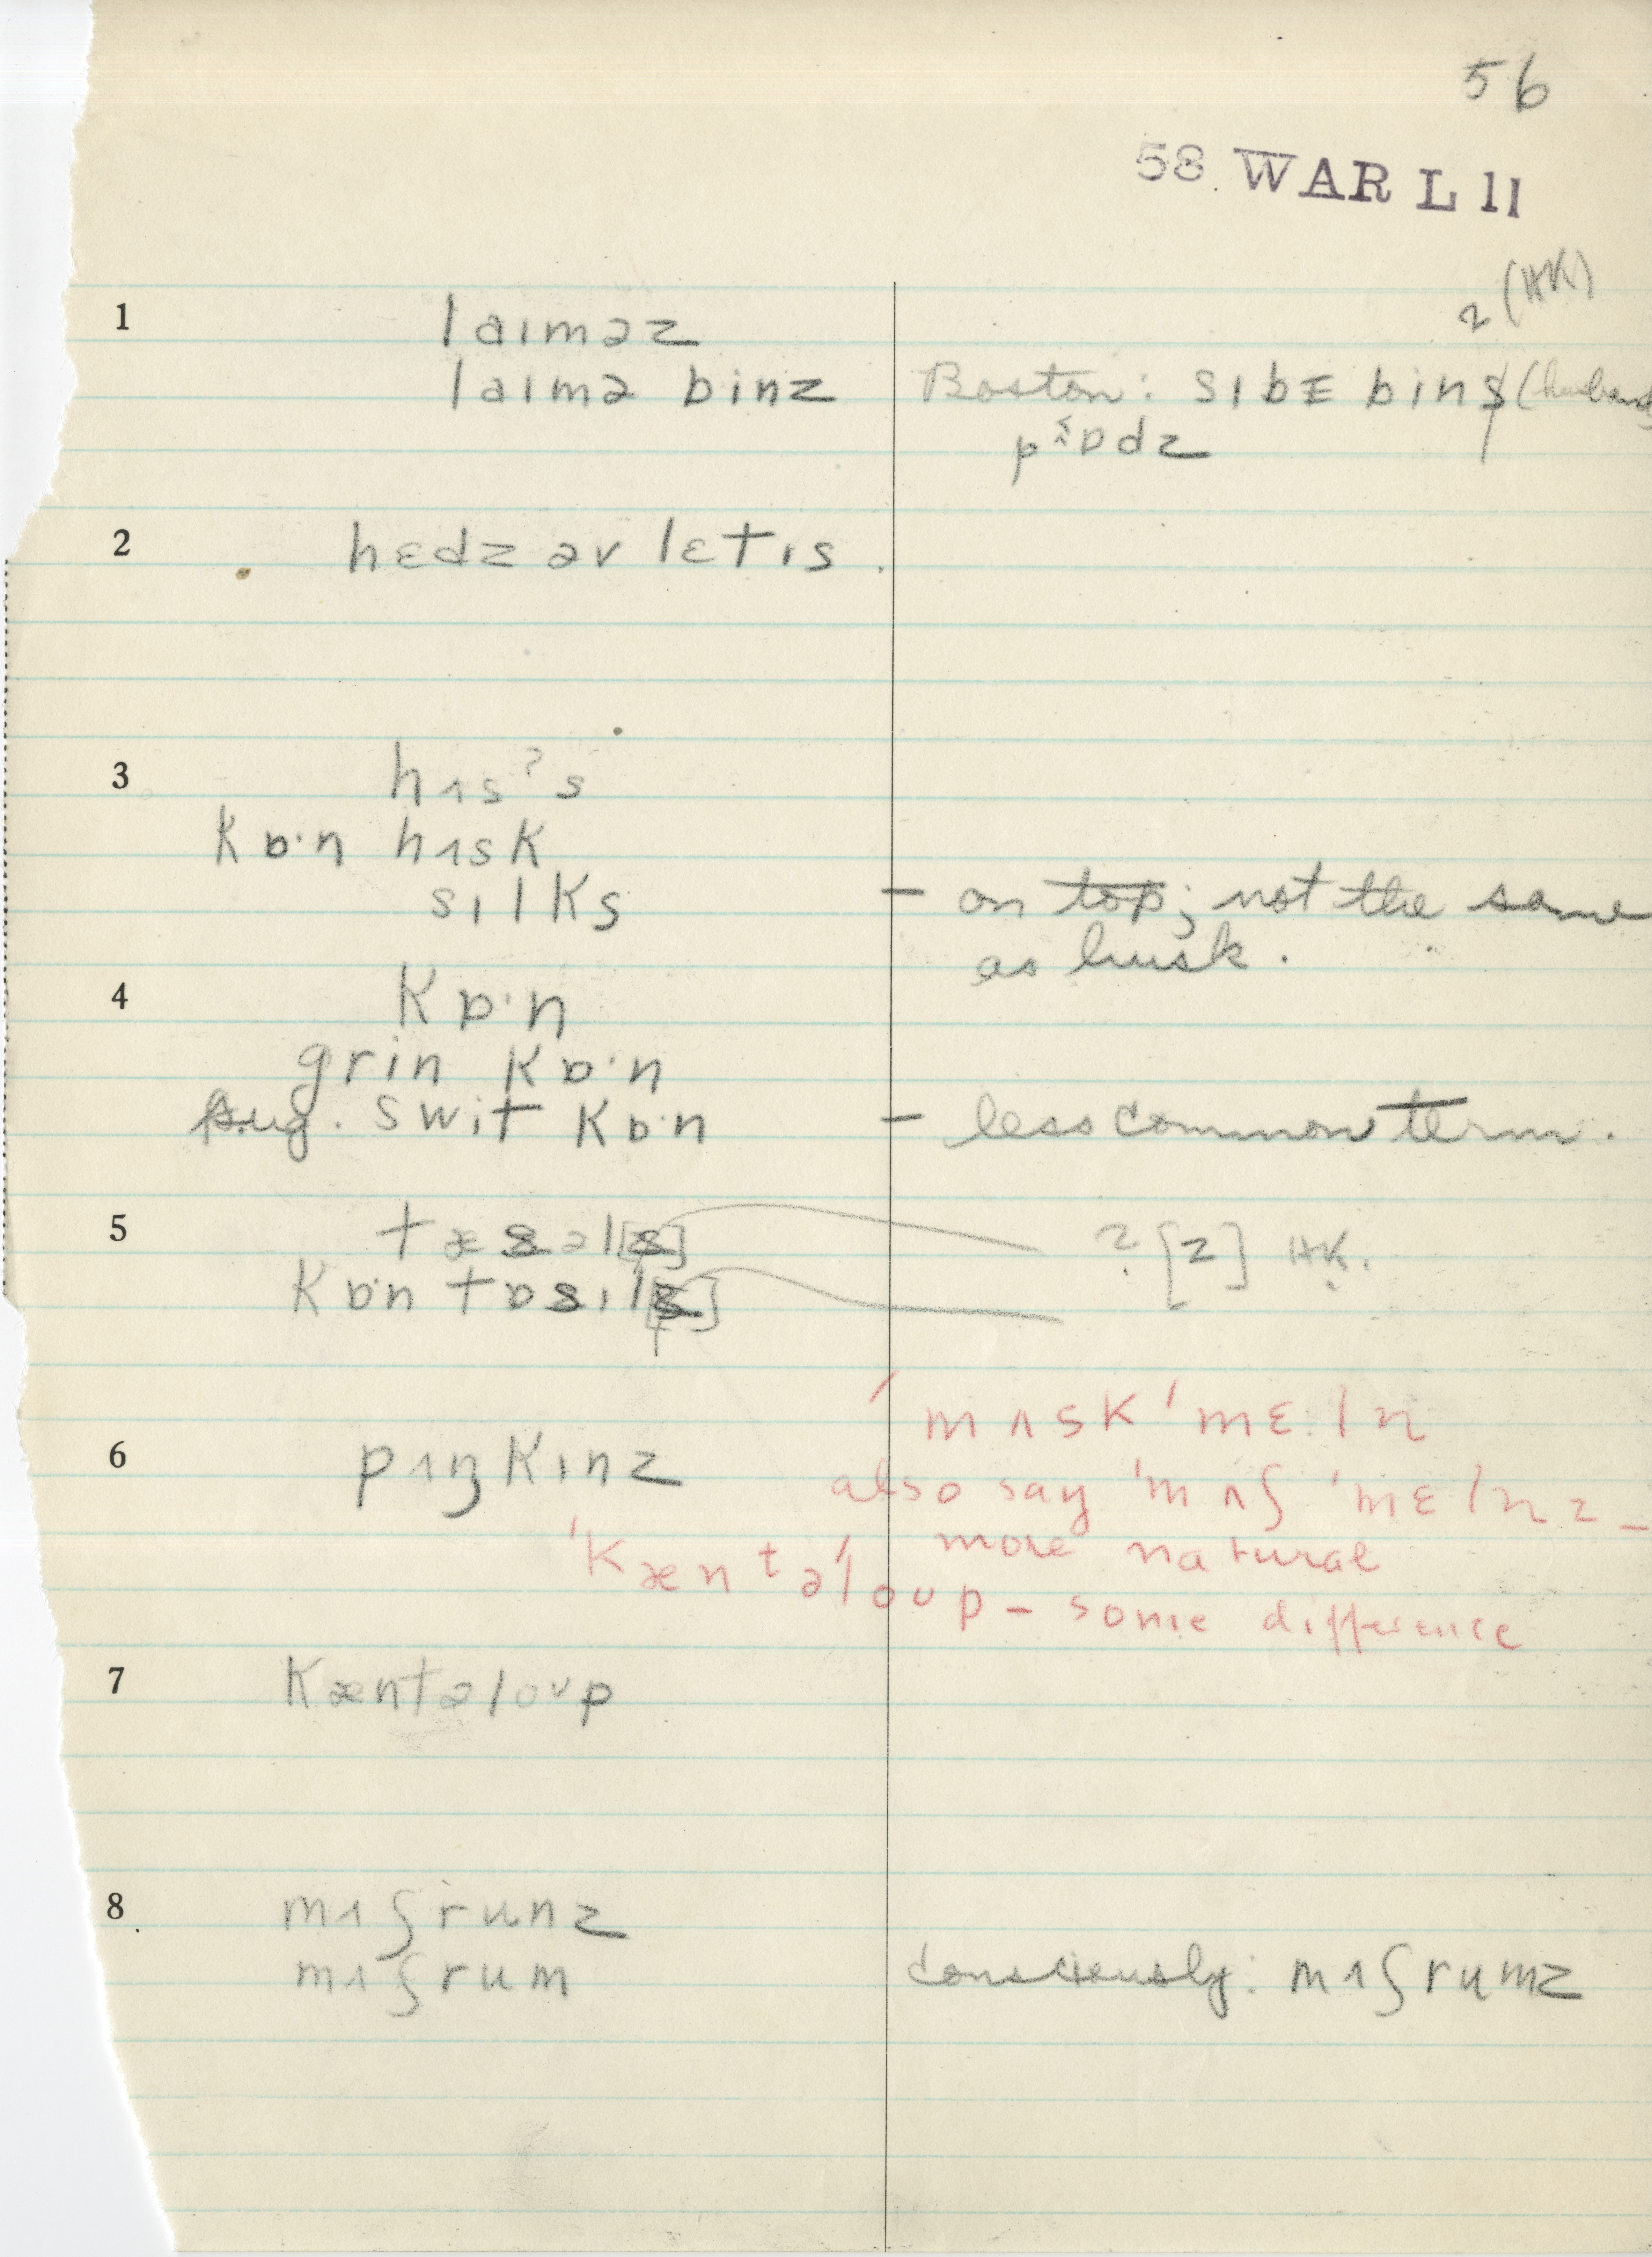 56
58 WAR L 11
z (HK)
1 laɪməz
laɪmə binz Boston: sɪbɛ bins (husband
pɒdz
2 hɛdz əv lɛtɪs.
3 hʌsˀs
kɒ·n hʌsk
sɪlks – on top; not the same
as husk.
4 kɒ·n
grin kɒ·n
sug. swit kɒ·n – less common term.
5 tæsəl[s] ? [z] HK.
kɒ·n tɒsɪl[s]
ˈmʌskˈmɛln
6 pʌŋkɪnz
also say ˈmʌʃˈmɛlnz –
more natural
ˈkæntəˈloʊp – some difference
7 kæntəloʊp
8 mʌʃrunz
mʌʃrum consciously: mʌʃrumz